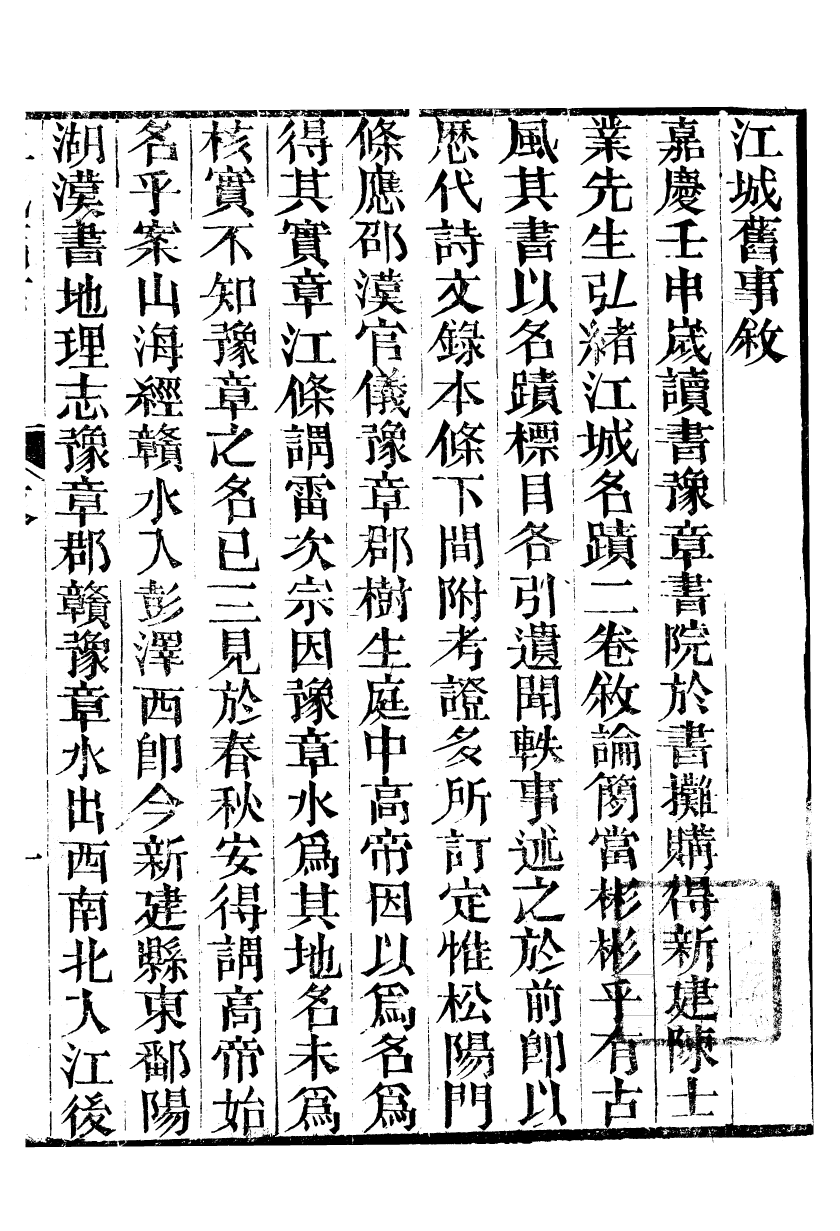 江城舊事敘
嘉慶壬申歲讀書豫章書院於書攤購得新建陳士
業先生弘緒江城名蹟二卷敘論簡當彬彬乎有古
風其書以名蹟標目各引遺聞軼事述之於前卽以
歷代詩文錄本條下間附考證多所訂定惟松陽門
條應邵漢官儀豫章郡樹生庭中高帝因以爲名爲
得其實章江條謂雷次宗因豫章水爲其地名未爲
核實不知豫章之名已三見於春秋安得謂高帝始
名乎案山海經贛水入彭澤西卽今新建縣東鄱陽
湖漢書地理志豫章郡贛豫章水出西南北入江後
一